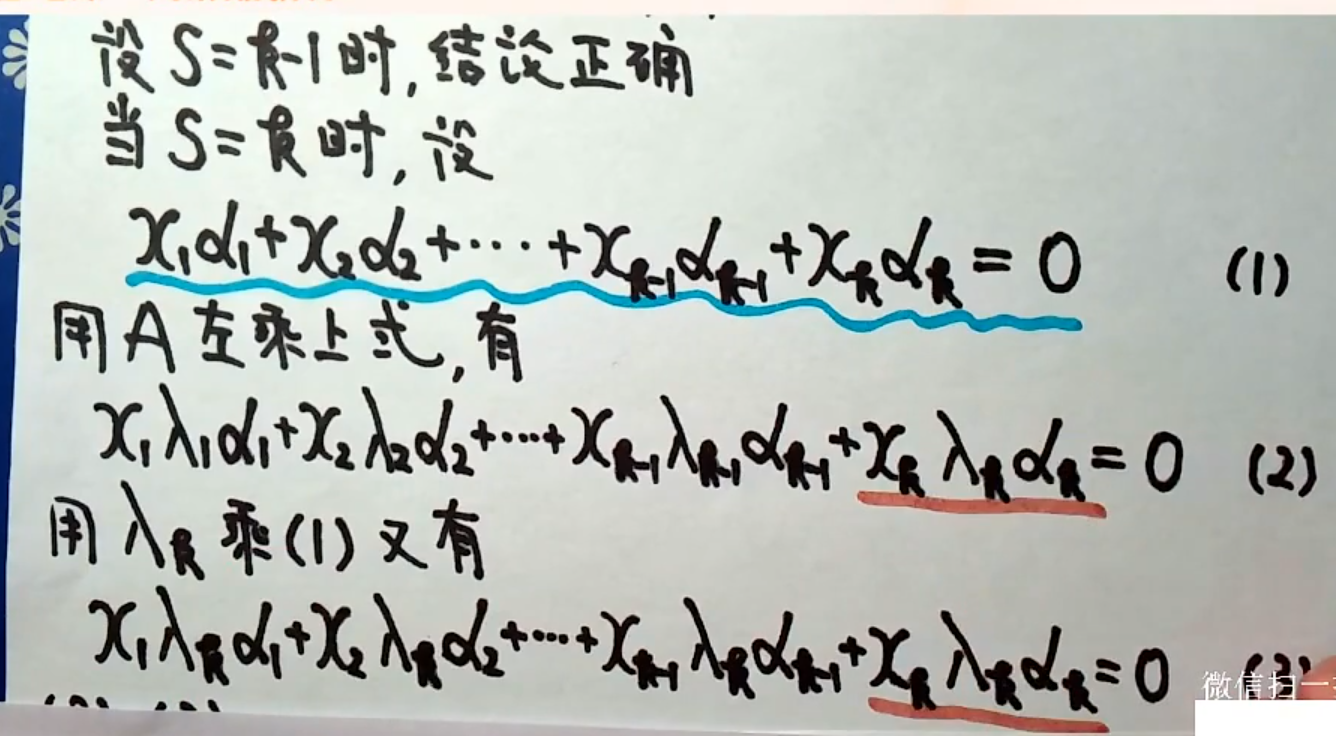 设 S=k-1 时,结论正确
当 S=k 时,设
x₁α₁+x₂α₂+⋯+xₖ₋₁αₖ₋₁+xₖαₖ=0 (1)
用 A 左乘上式,有
x₁λ₁α₁+x₂λ₂α₂+⋯+xₖ₋₁λₖ₋₁αₖ₋₁+xₖλₖαₖ=0 (2)
用 λₖ 乘(1)又有
x₁λₖα₁+x₂λₖα₂+⋯+xₖ₋₁λₖαₖ₋₁+xₖλₖαₖ=0
微信扫一